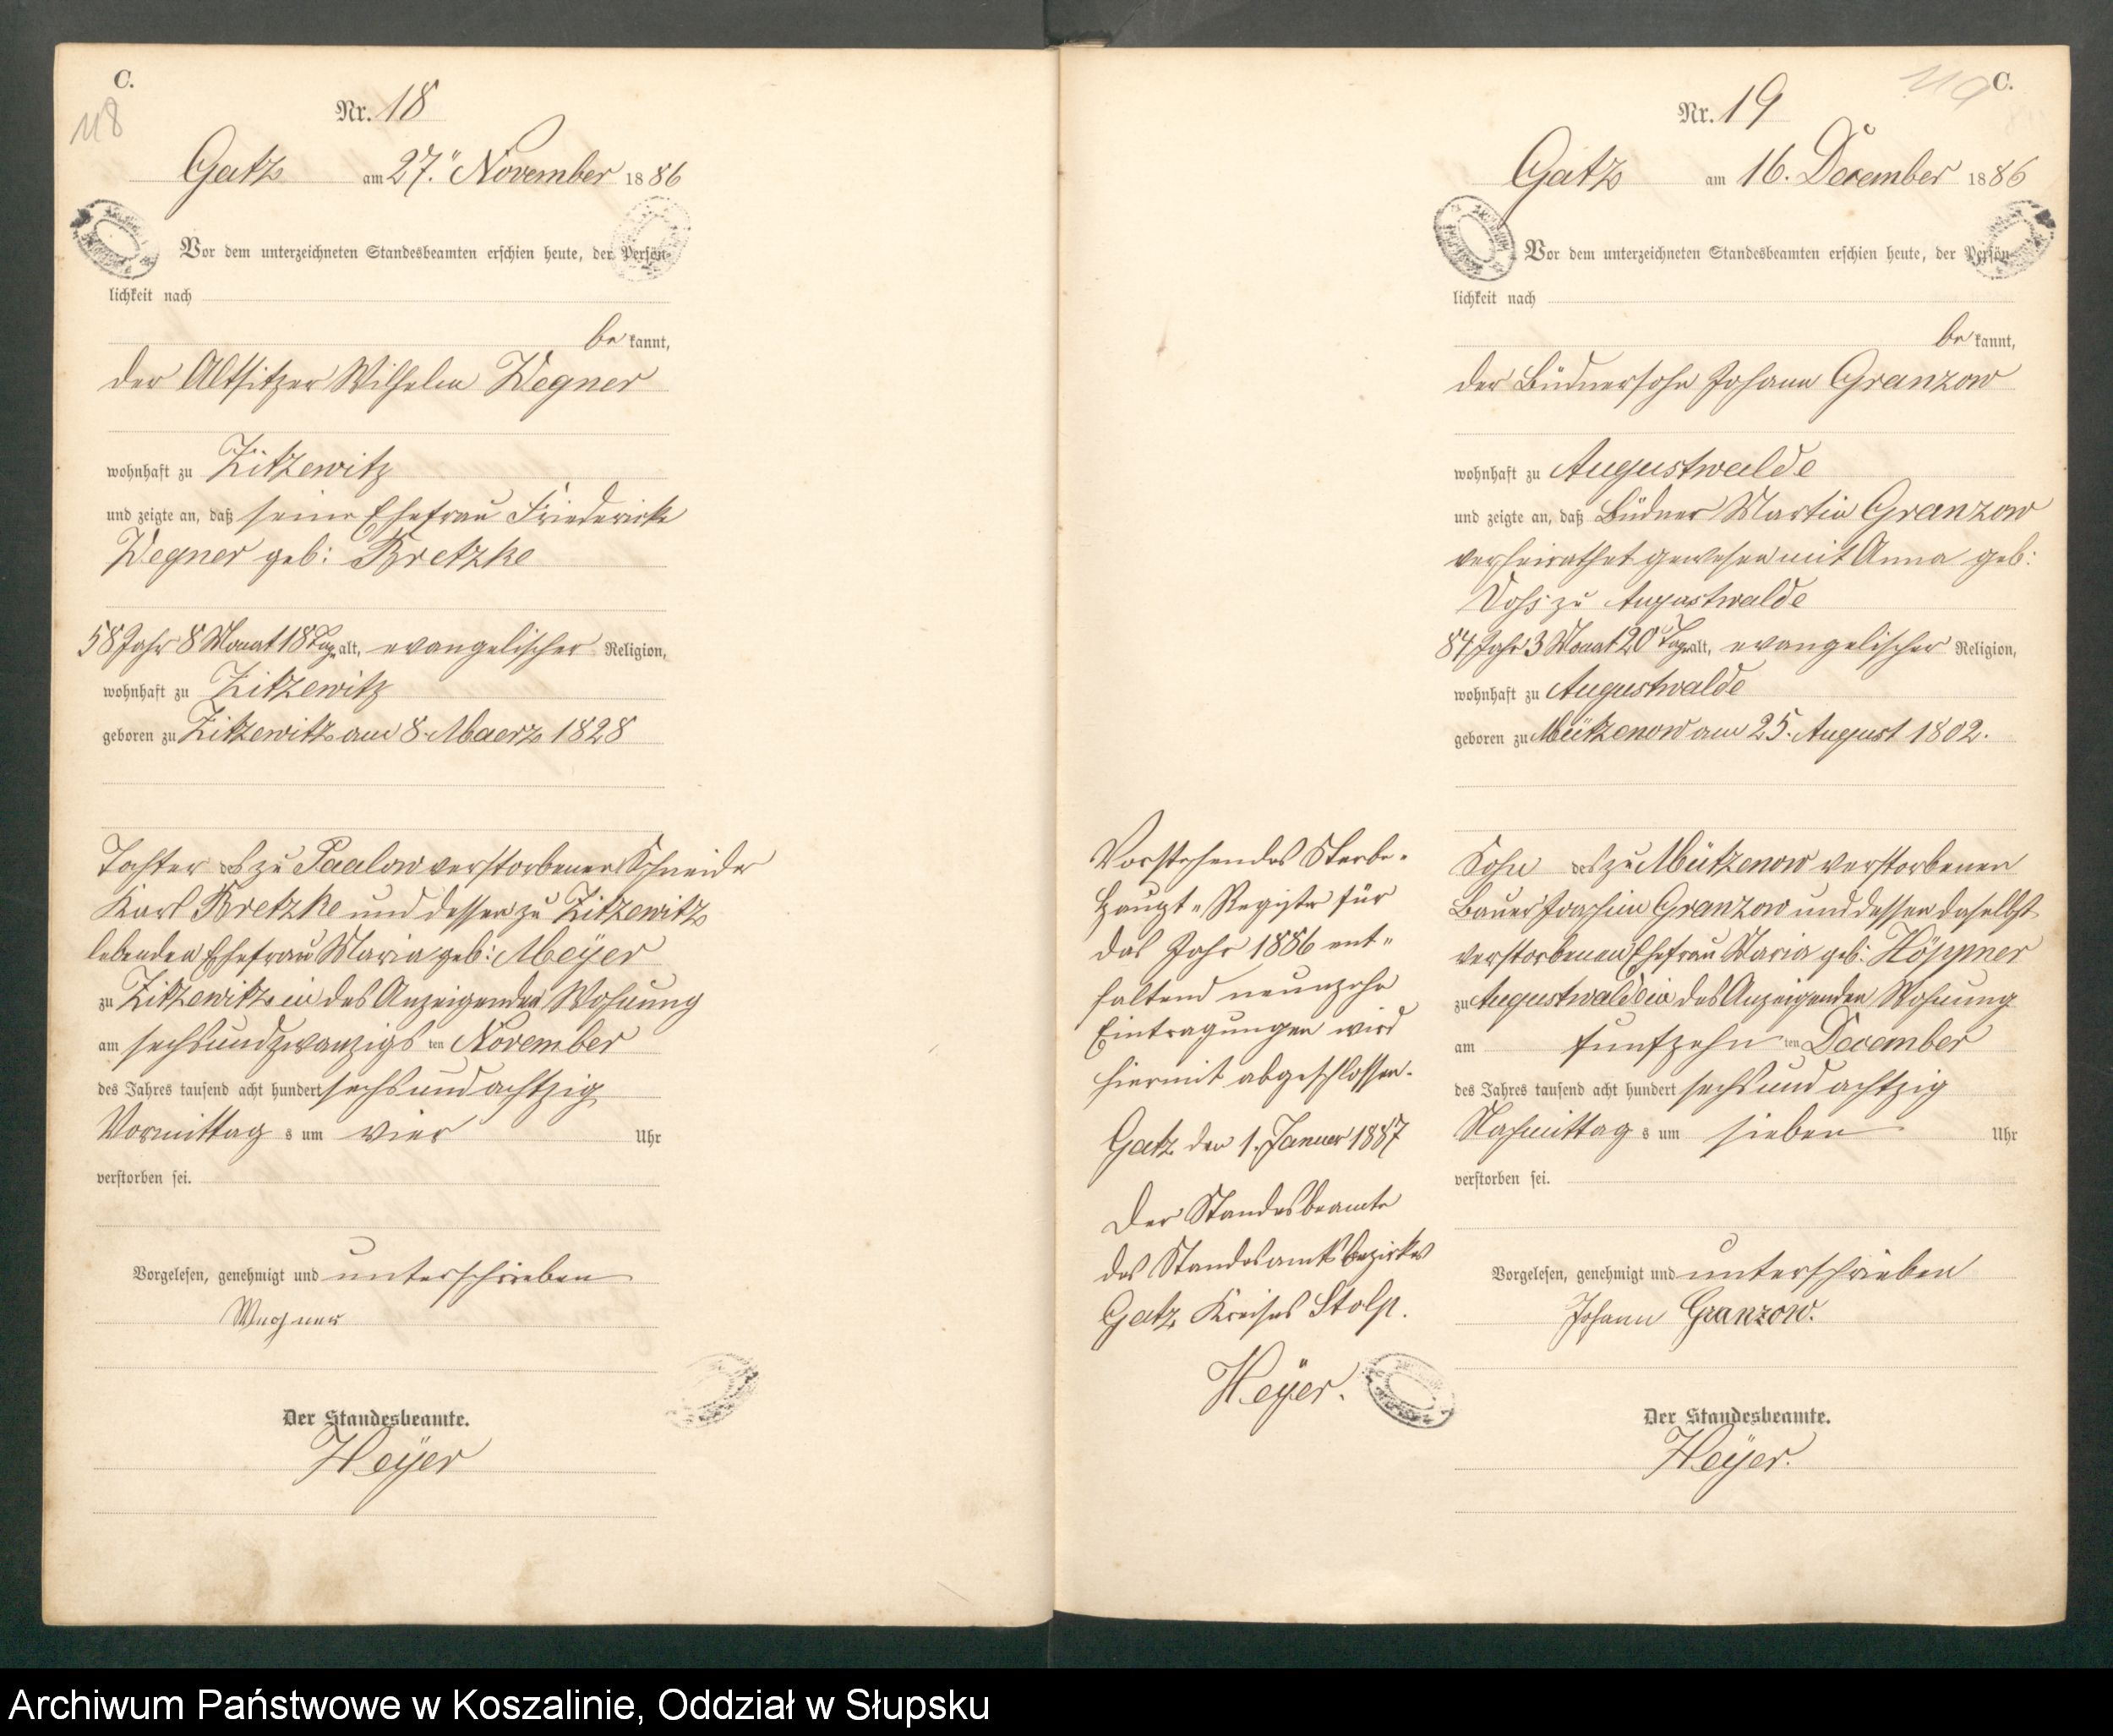 C.
118
Nr. 18
Gatz am 27. November 1886
Vor dem unterzeichneten Standesbeamten erschien heute, der Persön-
lichkeit nach
bekannt,
der Altsitzer Wilhelm Wegner
wohnhaft zu Zitzewitz
und zeigte an, daß seine Ehefrau Friedericke
Wegner geb: Bretzke
58 Jahr 8 Monat 18 Tage alt, evangelischer Religion,
wohnhaft zu Zitzewitz
geboren zu Zitzewitz am 8. Maerz 1828
Tochter des zu Paalow verstorbenen Schneider
Karl Bretzke und dessen zu Zitzewitz
lebenden Ehefrau Maria geb: Meÿer
zu Zitzewitz in des Anzeigenden Wohnung
am sechsundzwanzigsten November
des Jahres tausend acht hundert sechsundachtzig
Vormittags um vier Uhr
verstorben sei.
Vorgelesen, genehmigt und unterschrieben
Wegner
Der Standesbeamte.
Heÿer
C.
119
Nr. 19
Gatz am 16. December 1886
Vor dem unterzeichneten Standesbeamten erschien heute, der Persön-
lichkeit nach
bekannt,
der Büdnersohn Johann Granzow
wohnhaft zu Augustwalde
und zeigte an, daß Büdner Martin Granzow
verheirathet gewesen mit Anna geb:
Voß zu Augustwalde
84 Jahr 3 Monat 20 Tage alt, evangelischer Religion,
wohnhaft zu Augustwalde
geboren zu Mützenow am 25. August 1802.
Sohn des zu Mützenow verstorbenen
Bauer Joachim Granzow und dessen daselbst
verstorbenen Ehefrau Maria geb: Höppner
zu Augustwalde in des Anzeigenden Wohnung
am funfzehnten December
des Jahres tausend acht hundert sechsundachtzig
Nachmittags um sieben Uhr
verstorben sei.
Vorgelesen, genehmigt und unterschrieben
Johann Granzow.
Der Standesbeamte.
Heÿer.
Vorstehendes Sterbe-
Haupt-Register für
das Jahr 1886 ent-
haltend neunzehn
Eintragungen wird
hiermit abgeschlossen.
Gatz den 1. Januar 1887
Der Standesbeamte
des Standesamtsbezirkes
Gatz, Kreises Stolp.
Heÿer.
Archiwum Państwowe w Koszalinie, Oddział w Słupsku